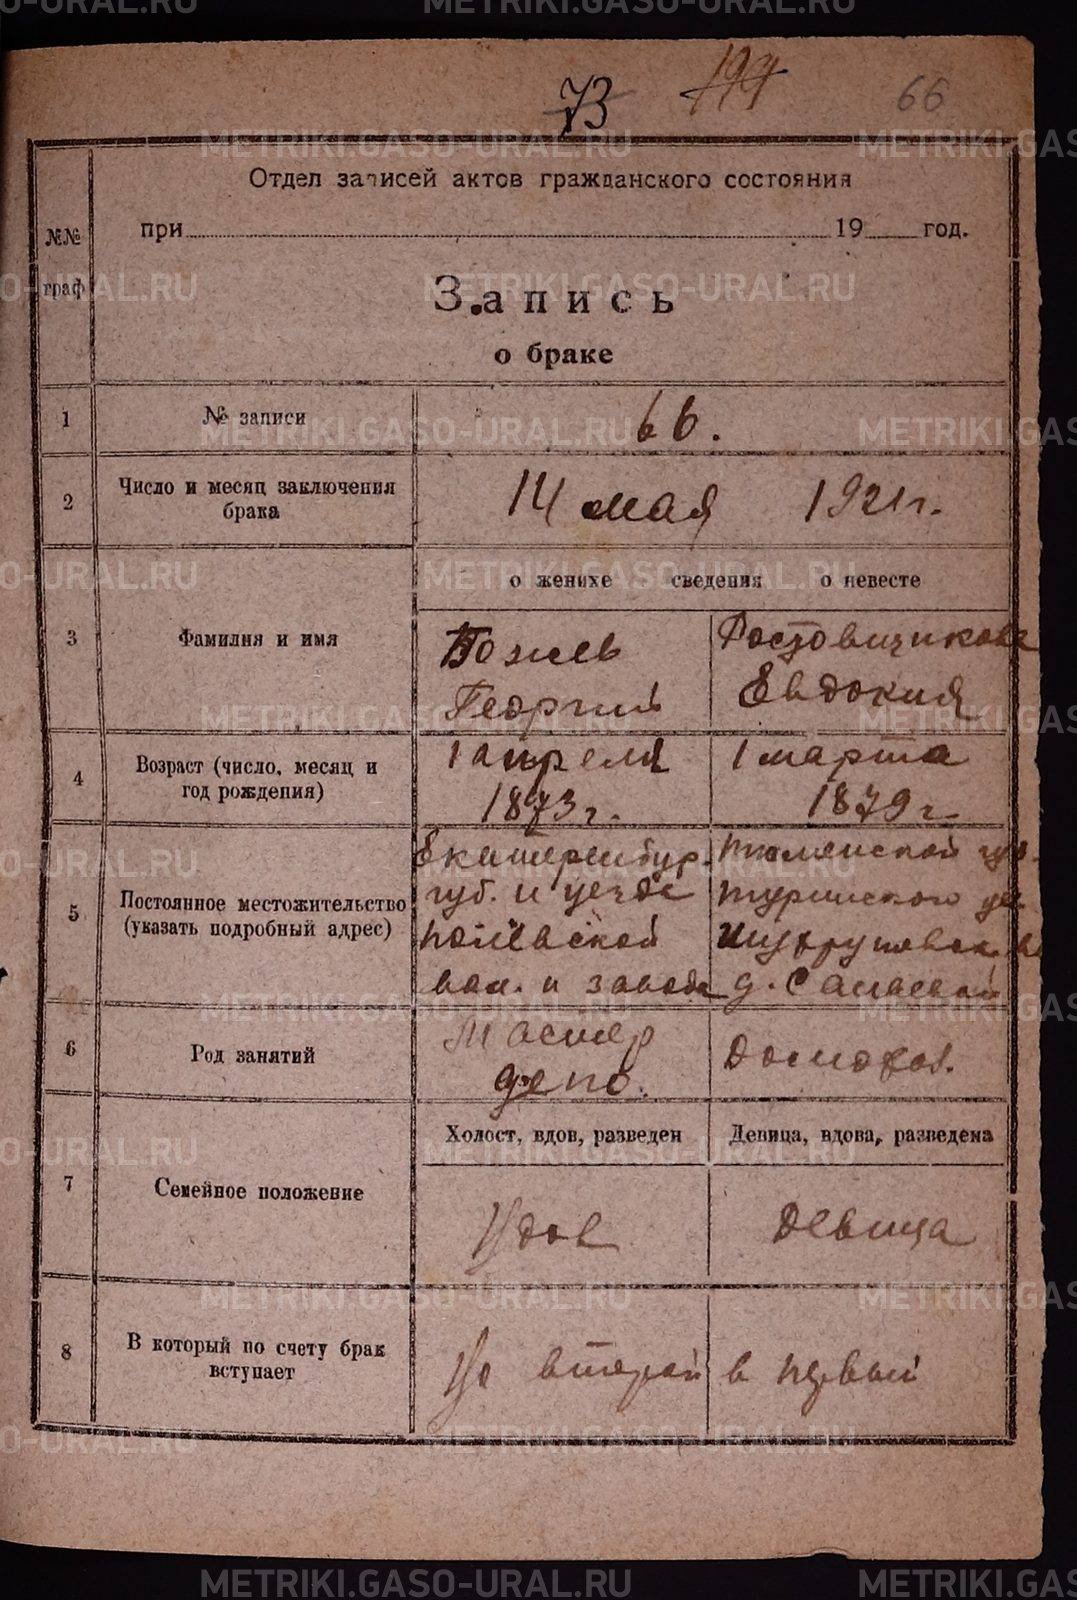 73 194 66
Отдел записей актов гражданского состояния
№№ граф
при 19 год.
Запись
о браке
1 № записи 66.
2 Число и месяц заключения брака 14 мая 1921 г.
о женихе сведения о невесте
3 Фамилия и имя
Божев Ростовщикова
Георгий Евдокия
4 Возраст (число, месяц и год рождения)
1 апреля 1 марта
1873 г. 1879 г.
5 Постоянное местожительство (указать подробный адрес)
Екатеринбур. Тюменской гу.
губ. и уезда Туринского уез
Полевской
вол. и завода д.
6 Род занятий
Мастер Домохоз.
депо.
Холост, вдов, разведен Девица, вдова, разведена
7 Семейное положение
Вдов Девица
8 В который по счету брак вступает
Во второй в первый
METRIKI.GASO-URAL.RU